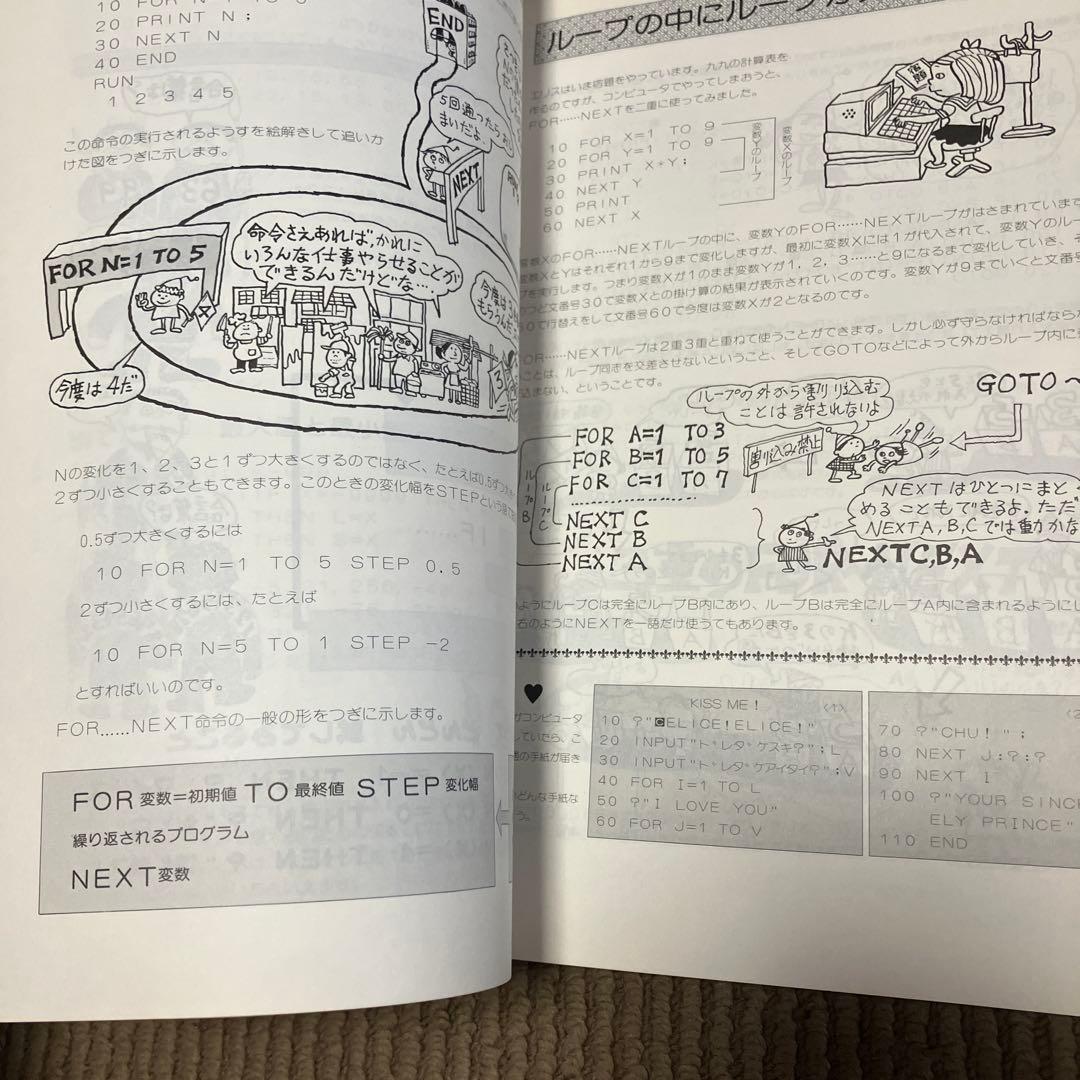 10 FOR N=1 TO 5
20 PRINT N;
30 NEXT N
40 END
RUN
1 2 3 4 5
この命令の実行されるようすを絵解きして追いか
けた図をつぎに示します。
END
5回通ったらお
まいだよ
NEXT
FOR N=1 TO 5
命令さえあれば,かれに
いろんな仕事やらせることが
できるんだけどな…
今度は
もらうんだ
今度は4だ
Nの変化を1、2、3と1ずつ大きくするのではなく、たとえば0.5ずつ大
2ずつ小さくすることもできます。このときの変化幅をSTEPという
0.5ずつ大きくするには
10 FOR N=1 TO 5 STEP 0.5
2ずつ小さくするには、たとえば
10 FOR N=5 TO 1 STEP -2
とすればいいのです。
FOR……NEXT命令の一般の形をつぎに示します。
FOR 変数=初期値 TO 最終値 STEP 変化幅
繰り返されるプログラム
NEXT変数
ループの中にループが
エリスはいま宿題をやっています。九九の計算表を
作るのですが、コンピュータでやってしまおうと、
FOR……NEXTを二重に使ってみました。
宿題
10 FOR X=1 TO 9
20 FOR Y=1 TO 9
30 PRINT X*Y;
40 NEXT Y
50 PRINT
60 NEXT X
変数Yのループ
変数Xのループ
変数XのFOR……NEXTループの中に、変数YのFOR……NEXTループがはさまれています
変数XとYはそれぞれ1から9まで変化しますが、最初に変数Xには1が代入されて、変数Yのルー
プを実行します。つまり変数Xが1のまま変数Yが1，2，3……と9になるまで変化していき、そ
のつど文番号30で変数Xとの掛け算の結果が表示されていくのです。変数Yが9までいくと文番
50で行替えをして文番号60で今度は変数Xが2となるのです。
FOR……NEXTループは2重3重と重ねて使うことができます。しかし必ず守らなければならな
ことは、ループ同志を交差させないということ、そしてGOTOなどによって外からループ内に
込まない、ということです。
ループの外から割り込む
ことは許されないよ
GOTO〜
割り込み禁止
FOR A=1 TO 3
FOR B=1 TO 5
FOR C=1 TO 7
NEXT C
NEXT B
NEXT A
ループB
ループC
NEXTはひとつにまと
めることもできるよ.ただ
NEXTA,B,Cでは動かな
NEXTC,B,A
ようにループCは完全にループB内にあり、ループBは完全にループA内に含まれるようにし
右のようにNEXTを一語だけ使うてもあります。
がコンピュータ
していたら、こ
の手紙が届き
どんな手紙な
う。
KISS ME! 〈1〉
10 ?"CELICE!ELICE!"
20 INPUT"ドレダケスキ?";L
30 INPUT"ドレダケアイタイ?";V
40 FOR I=1 TO L
50 ?"I LOVE YOU"
60 FOR J=1 TO V
70 ?"CHU! ";
80 NEXT J:?:?
90 NEXT I
100 ?"YOUR SINC
ELY PRINCE"
110 END